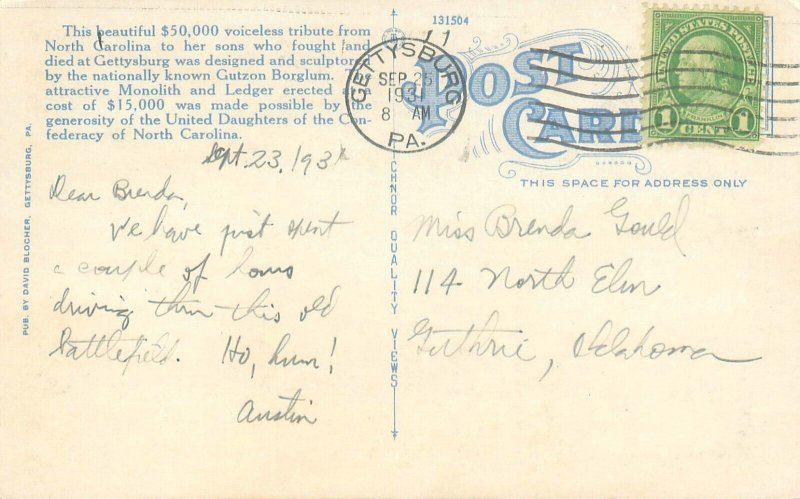 This beautiful $50,000 voiceless tribute from
North Carolina to her sons who fought and
died at Gettysburg was designed and sculptored
by the nationally known Gutzon Borglum.
attractive Monolith and Ledger erected at a
cost of $15,000 was made possible by the
generosity of the United Daughters of the Con-
federacy of North Carolina.
Sept. 23, 1931
Dear Brenda,
We have just spent
a couple of hours
driving thru this old
battlefield. Ho, hum!
Austin
PUB. BY DAVID BLOCHER, GETTYSBURG, PA.
131504
GETTYSBURG
SEP 25
1931
8 AM
PA.
POST
CARD
THIS SPACE FOR ADDRESS ONLY
UNITED STATES POSTAGE
FRANKLIN
1 CENT 1
QUALITY VIEWS
Miss Brenda Gould
114 North Elm
Guthrie, Oklahoma